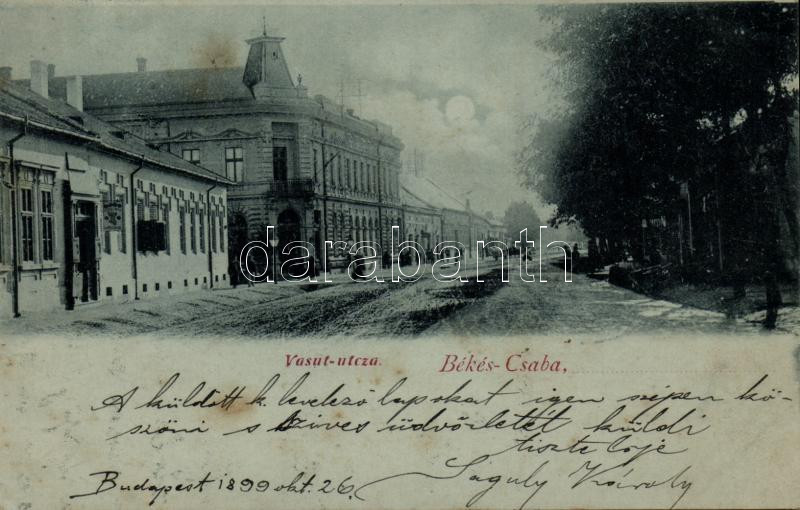 darabanth
Vasut-utcza. Békés-Csaba,
A küldött k. levelező lapokat igen szépen kö-
szöni s szíves üdvözletét küldi
tisztelője
Budapest 1899 okt. 26. Saguly Károly